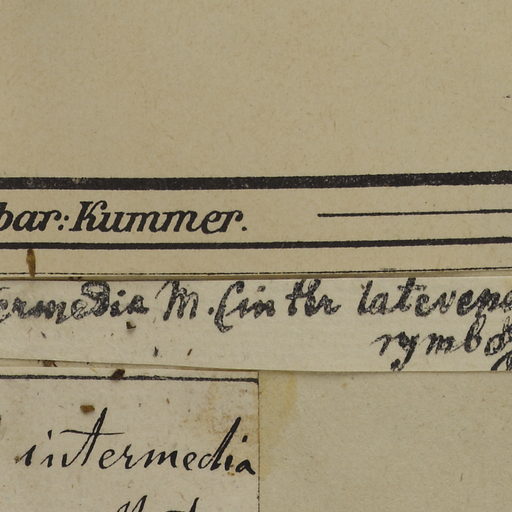 bar: Kummer.
termedia M. (in thr latevena
symbol
intermedia